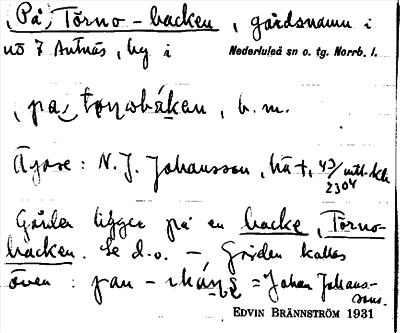 (På) Törno-backen, gårdsnamn i
nö 7 Antnäs, by i Nederluleå sn o. tg. Norrb. l.
b. m.
Ägare: N. J. Johansson,
2304
Gården ligger på en backe, Törno-
backen. Se d. o. — Gården kallas
även: = Johan Johans-
sons.
EDVIN BRÄNNSTRÖM 1931